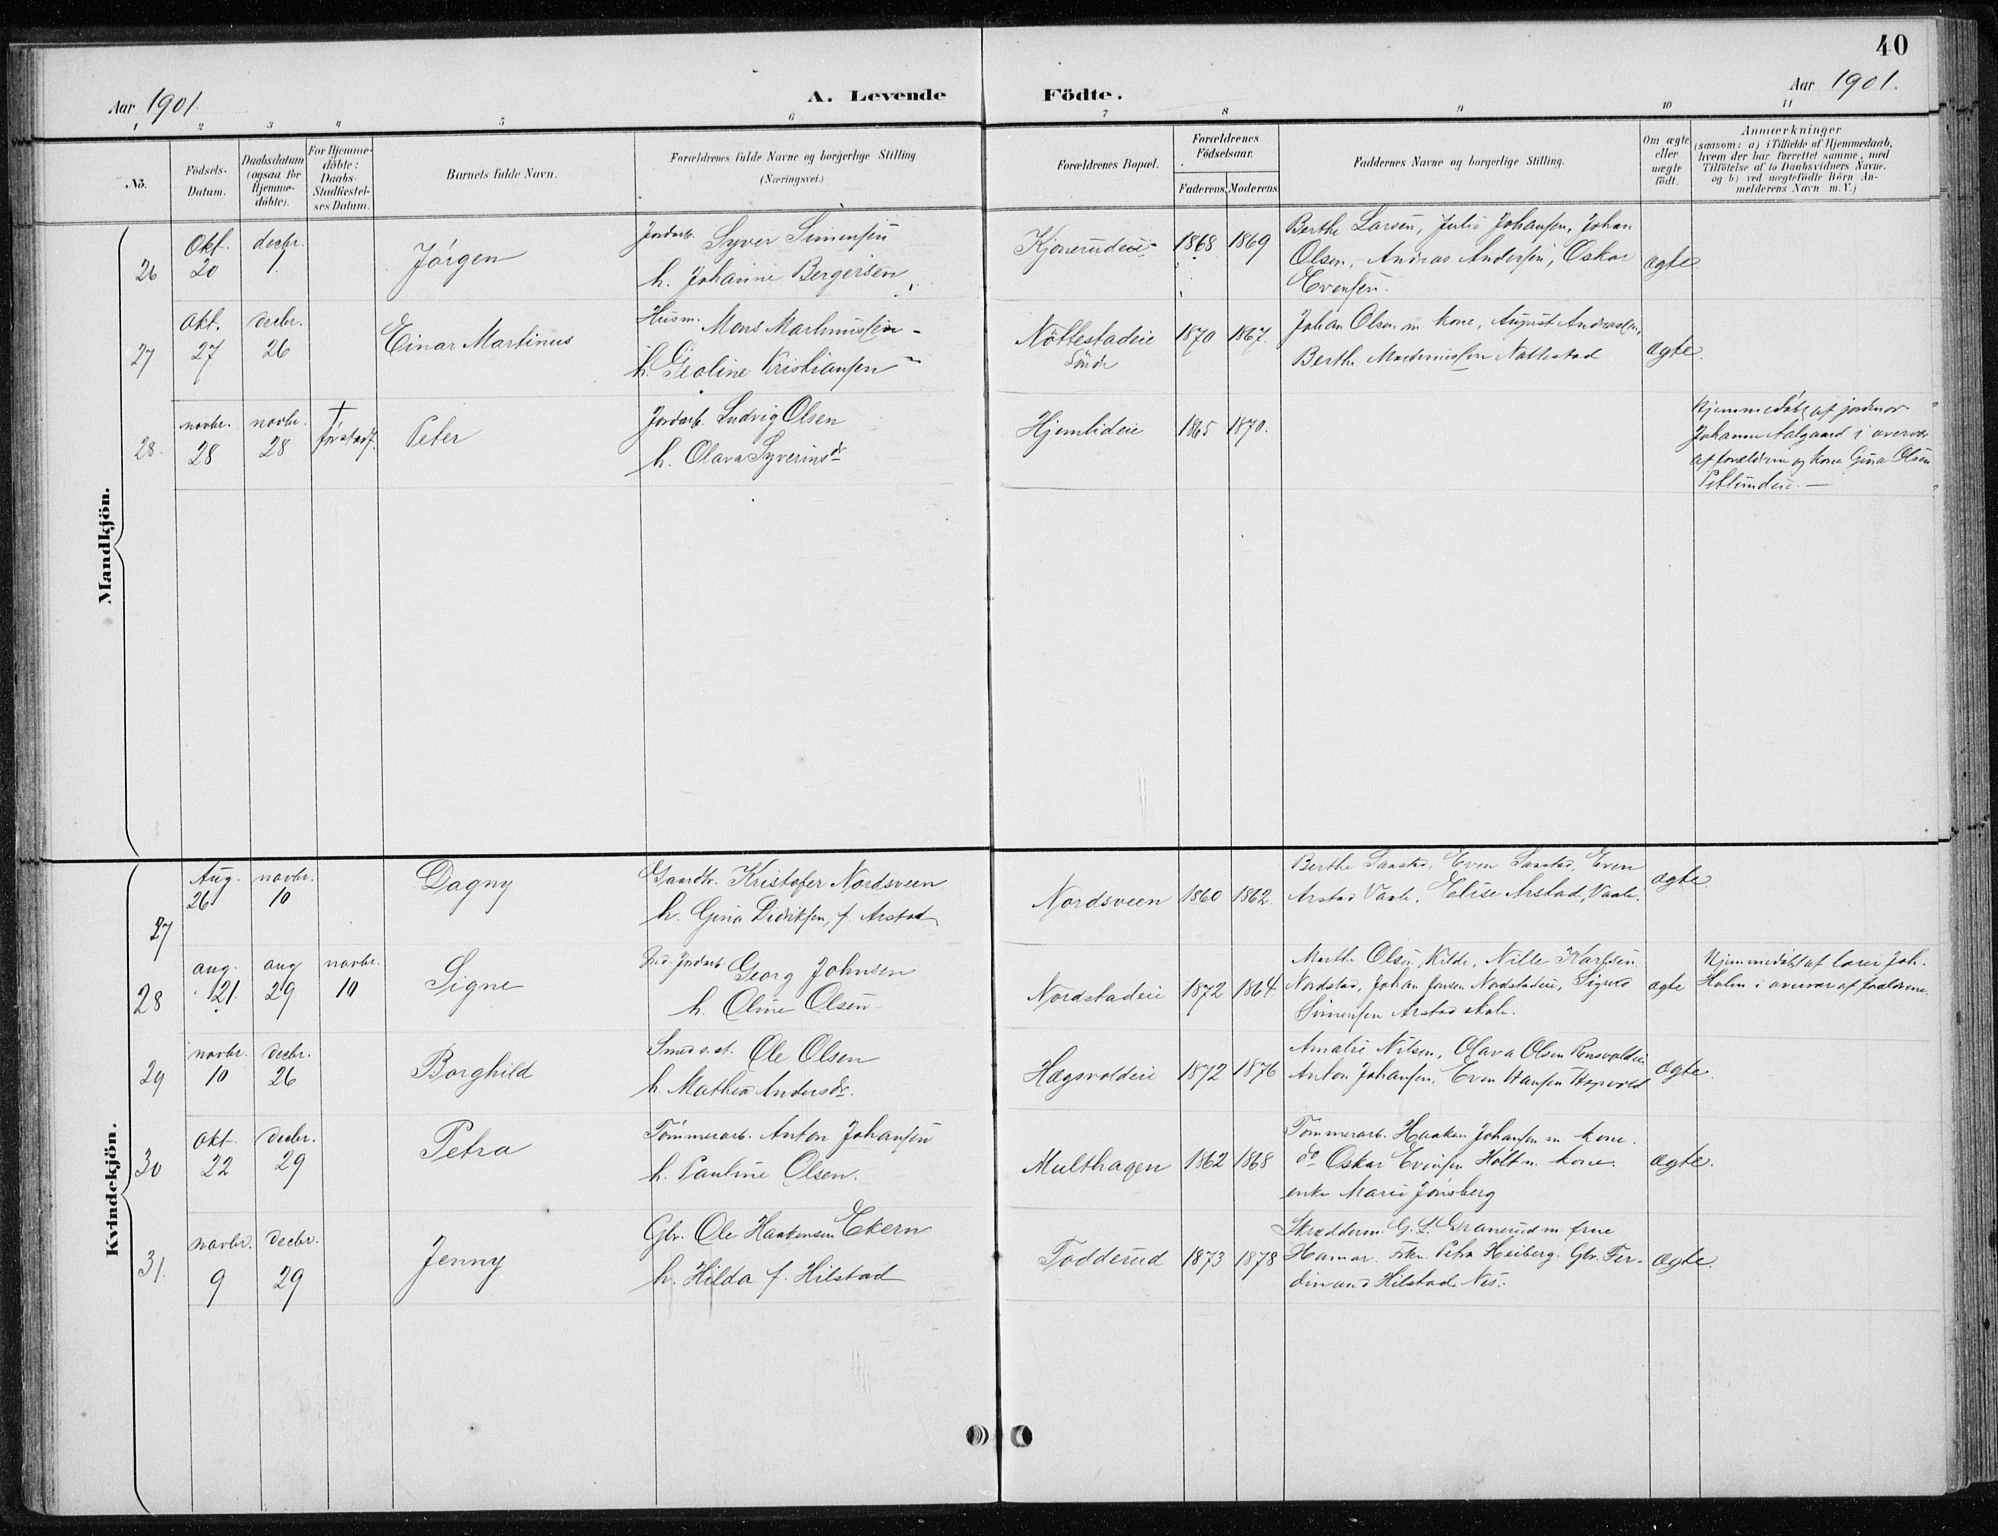 40
Aar 1901.
A. Levende
Födte.
Aar 1901.
1 2 3 4 5 6 7 8 9 10 11
No.
Födsels-
Datum.
Daabsdatum
(ogsaa for
Hjemme-
döbte).
For Hjemme-
döbte:
Daabs-
Stadfæstel-
ses Datum.
Barnets fulde Navn.
Forældrenes fulde Navne og borgerlige Stilling
(Næringsvei.)
Forældrenes Bopæl.
Forældrenes
Födselsaar.
Faderens. Moderens.
Faddernes Navne og borgerlige Stilling.
Om ægte
eller
uægte
födt.
Anmærkninger
(saasom: a) i Tilfælde af Hjemmedaab,
hvem der har forrettet samme, med
Tilföielse af to Daabsvidners Navne.
og b) ved uægtefödte Börn An-
melderens Navn m. V.)
Mandkjön.
26
Okt.
20
decbr.
1
Jørgen
Jordarb. Syver Simensen
h. Johanne Bergersen
1868 1869
Berthe Larsen, Julie Johansen, Johan
Olsen, Andreas Andersen, Oskar
Evensen.
ægte
27
Okt.
27
decbr.
26
Einar Martinus
Husm. Mons Martinussen
h. Geoline Kristiansen
Nöttestadeie
Söndr
1870 1867.
Johan Olsen m. kone, August Andreassen,
Berthe Martinussen Nøttestad
ægte.
28.
novbr.
28
novbr.
28
†
Peter
Jordarb. Ludvig Olsen
h. Olava Syverinsdr
Hjemlideie
1865 1870.
Hjemmedøbt af jordmor
Johanne Aalgaard i overvær
af forældrene og kone Gina Olsen
Kvindekjön.
27
Aug.
26
novbr.
10
Dagny
Gaardbr. Kristofer Nordsveen
h. Gina Didriksen, f. Arstad
Nordsveen
1860 1862.
Berthe Saastad, Even Saastad, Even
Arstad Vaale, Elise Arstad, Vaale.
ægte
28
aug.
21.
aug
29
novbr.
10
Signe
Ind. Jordarb. Georg Johnsen
h. Oline Olsen
Nordstadeie
1872 1864.
Marthe Olsen, Kilde, Nille Karlsen
Nordstad, Johan Jensen Nordstadeie, Signe
Simensen Arstad skole.
ægte
Hjemmedøbt af lærer Joh.
Holm i overvær af forældrene.
29
novbr.
10
decbr.
26
Borghild
Smed s.st. Ole Olsen
h. Mathea Andersdr.
Hægsvoldeie
1872 1876
Amalie Nilsen, Olava Olsen Rensvoldeie
Anton Johansen, Even Hansen Hægsvold
ægte.
30
Okt.
22
decbr.
29
Petra
Tømmerarb. Anton Johansen
h. Pauline Olsen.
Multhagen
1862 1868
Tømmerarb. Haaken Johansen m. kone.
do Oskar Evensen Holt m. kone.
enke Marie Jønsberg
ægte.
31.
novbr.
9
decbr.
29
Jenny
Gbr. Ole Haakensen Ekern
h. Hilda f. Hilstad
Todderud
1873 1878
Skrædderm. G. L. Granerud m. frue
Hamar. Frkn. Petra Heiberg. Gbr. Fer-
dinand Hilstad Nes.
ægte.